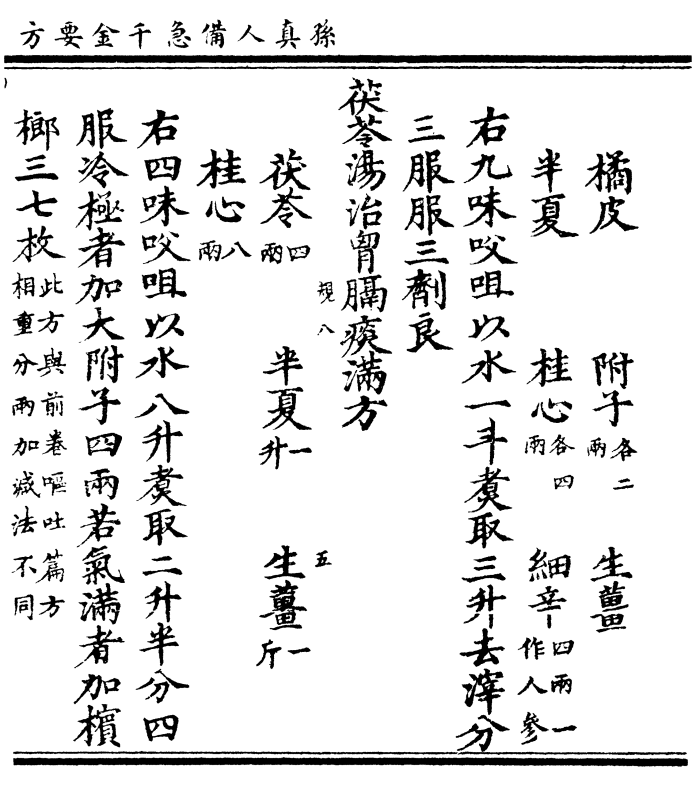 孫真人備急千金要方
橘皮 附子各二兩 生薑
半夏 桂心各四兩 細辛四兩一作人參
右九味㕮咀以水一斗煑取三升去滓分
三服服三劑良
茯苓湯治胷膈痰滿方
規八
茯苓四兩 半夏一升 生薑一斤
五
桂心八兩
右四味㕮咀以水八升煑取二升半分四
服冷極者加大附子四兩若氣滿者加檳
榔三七枚此方與前卷嘔吐篇方相重分兩加減法不同